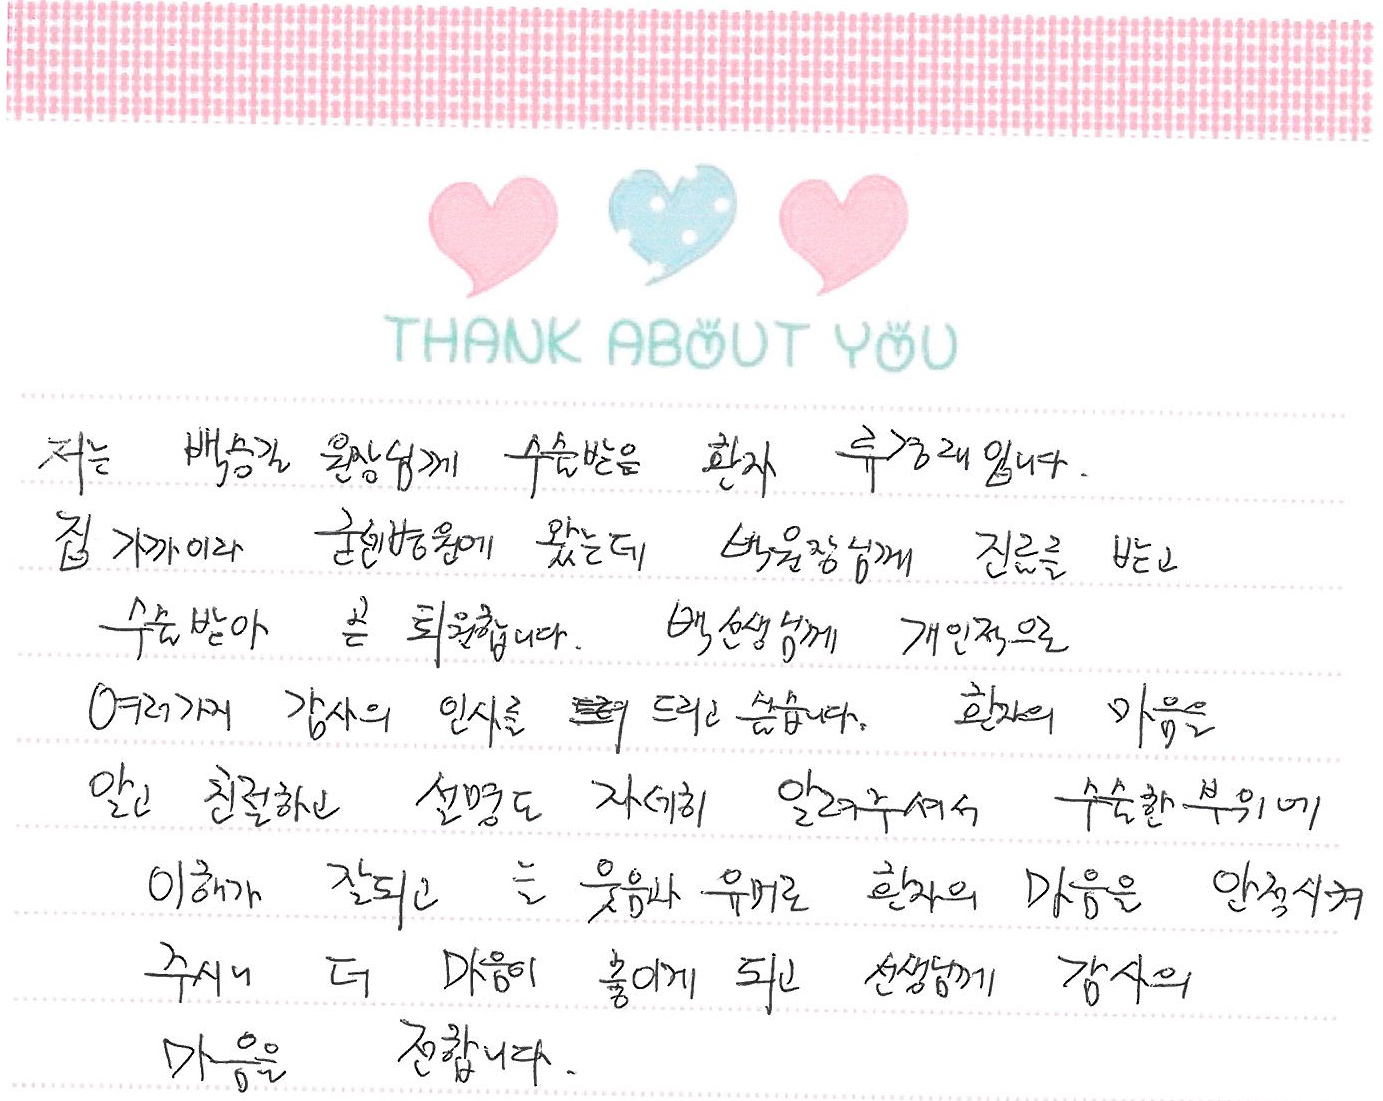 THANK ABOUT YOU
저는 백승길 원장님께 수술받은 환자 류경래입니다.
집 가까이라 굳센병원에 왔는데 백원장님께 진료를 받고
수술받아 곧 퇴원합니다. 백선생님께 개인적으로
여러가지 감사의 인사를 드리고 싶습니다. 환자의 마음을
알고 친절하고 설명도 자세히 알려주셔서 수술한 부위에
이해가 잘되고 늘 웃음과 유머로 환자의 마음을 안정시켜
주시니 더 마음이 좋이게 되고 선생님께 감사의
마음을 전합니다.